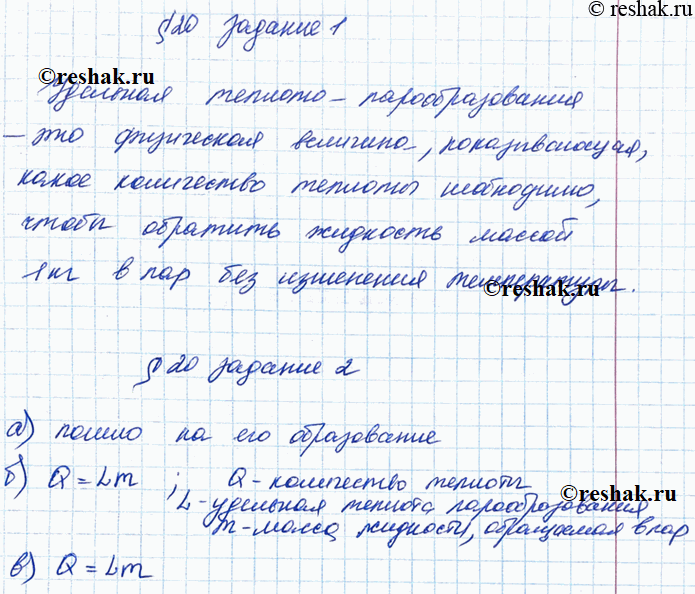 ©reshak.ru
§20 задание 1
©reshak.ru
Удельная теплота - парообразования
- это физическая величина, показывающая,
какое количество теплоты необходимо,
чтобы обратить жидкость массой
1кг в пар без изменения температуры.
©reshak.ru
§20 задание 2
а) пошло на его образование
б) Q = Lm ; Q - количество теплоты
©reshak.ru
L - удельная теплота парообразования
m - масса жидкости, обращаемая в пар
в) Q = Lm